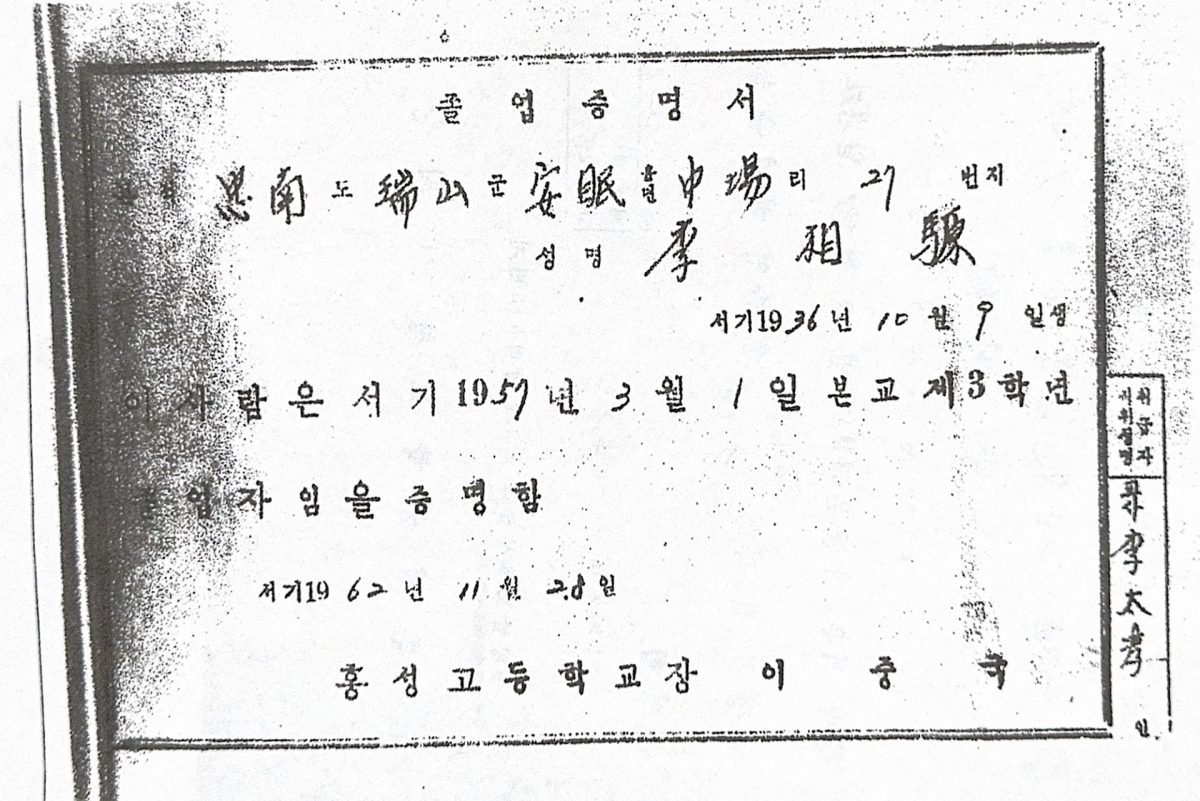 졸업증명서
忠南도 瑞山군 安眠읍면 中場리 27 번지
성명 李相騵
서기1936년 10월 9일생
이사람은서기1957년 3월 1일본교제3학년
졸업자임을증명함
서기1962년 11월 28일
홍성고등학교장 이중국
취급자
직위성명
李太孝
인